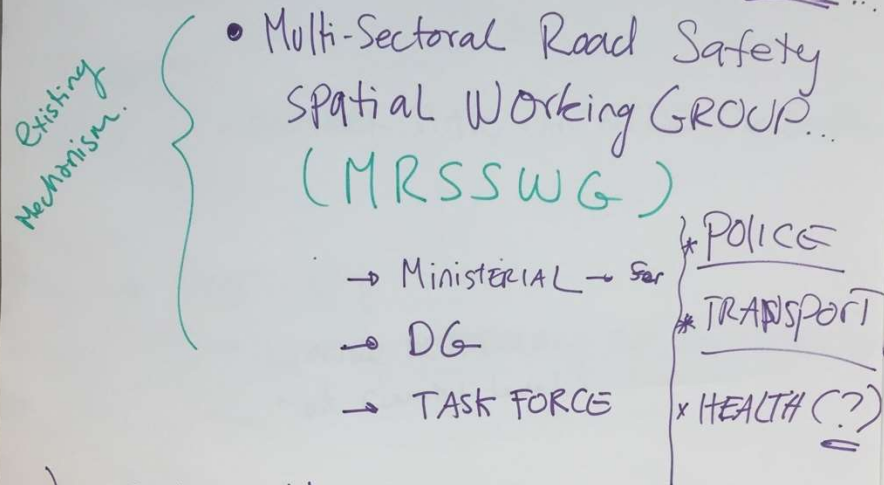 existing
Mechanism.
• Multi-Sectoral Road Safety
Spatial Working GROUP...
(MRSSWG)
→ MINISTERIAL → for
→ DG
→ TASK FORCE
* POLICE
* TRANSPORT
x HEALTH (?)